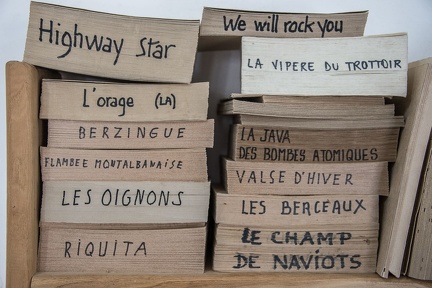 Highway Star
L'orage (LA)
BERZINGUE
FLAMBEE MONTALBANAISE
LES OIGNONS
RIQUITA
We will rock you
LA VIPERE DU TROTTOIR
LA JAVA
DES BOMBES ATOMIQUES
VALSE D'HIVER
LES BERCEAUX
LE CHAMP
DE NAVIOTS